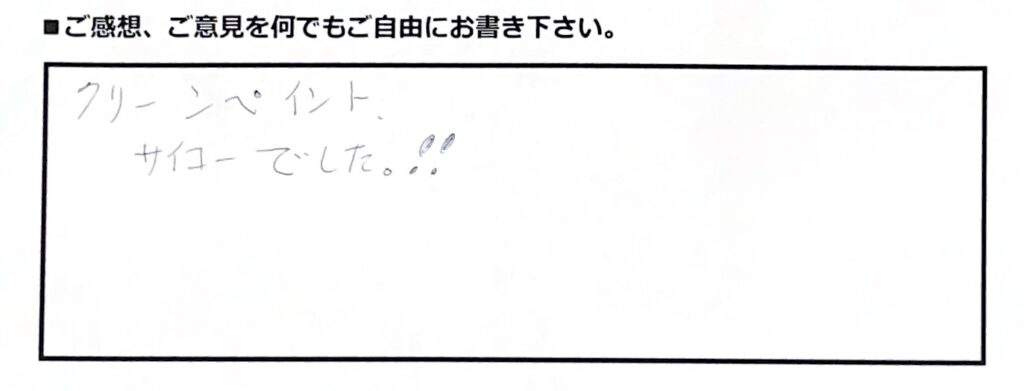 ■ご感想、ご意見を何でもご自由にお書き下さい。
クリーンペイント、
サイコーでした。!!